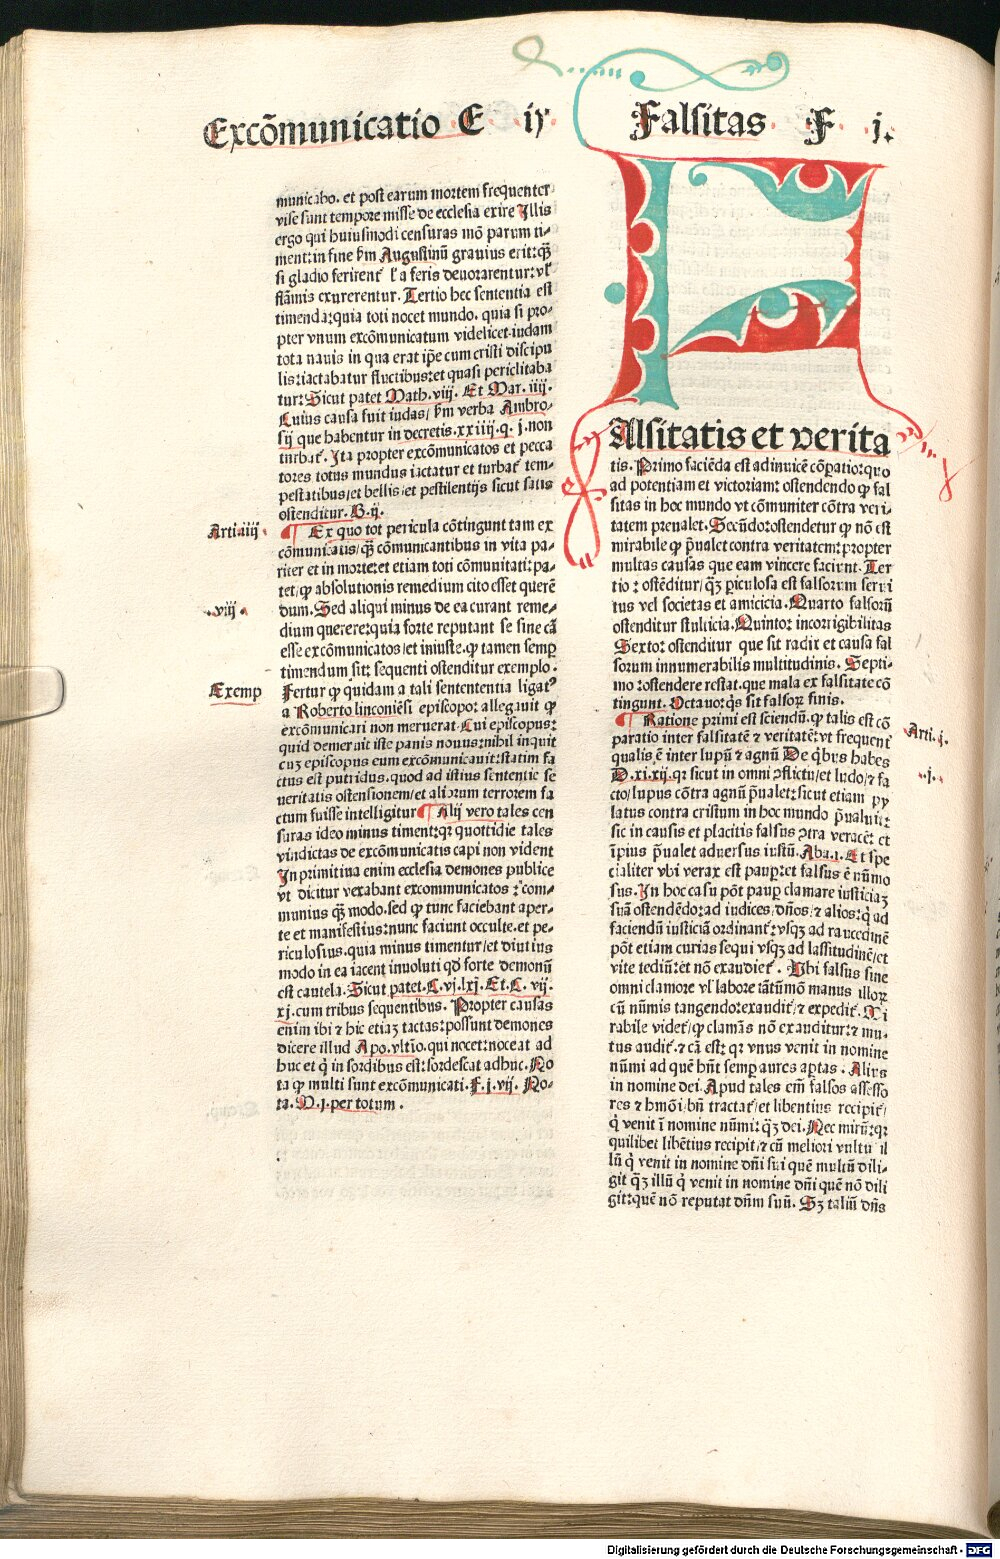 Excōmunicatio E ix
municabo. et post earum mortem frequenter
vise sunt tempore misse de ecclesia exire Illis
ergo qui huiusmodi censuras mō parum ti-
ment: in fine ẜm Augustinū grauius erit: qᷓ
si gladio ferirent̉ l̉ a feris deuorarentur: vl̉
flāmis exurerentur. Tertio hec sententia est
timenda: quia toti nocet mundo. quia si pro-
pter vnum excōmunicatum videlicet iudam
tota nauis in qua erat ip̄e cum cristi discipu
lis: iactabatur fluctibus: et quasi periclitaba
tur: Sicut patet Math. viij. Et Mar. iiij.
Cuius causa fuit iudas/ ẜm verba Ambro-
sij que habentur in decretis. xxiiij. q. j. non
turbat̉. Ita propter excōmunicatos et pecca
tores totus mundus iactatur et turbat̉ tem-
pestatibus/ et bellis/ et pestilentijs sicut satis
ostenditur. B. ij.
Arti. iiij
¶ Ex quo tot pericula cōtingunt tam ex
cōmunicatis/ qᷓ cōmunicantibus in vita pa-
riter et in morte: et etiam toti cōmunitati: pa-
tet/ ꝙ absolutionis remedium cito esset querē
.viij.
dum. Sed aliqui minus de ea curant reme-
dium querere: quia forte reputant se sine cā
esse excōmunicatos/ et iniuste. ꝙ tamen semꝑ
timendum sit: sequenti ostenditur exemplo.
Exemp
Fertur ꝙ quidam a tali sentententia ligatꝰ
a Roberto linconiēsi episcopo: allegauit ꝙ
excōmunicari non meruerat. Cui episcopus:
quid demeruit iste panis nouus: nihil inquit
cuꝫ episcopus eum excōmunicauit: statim fa
ctus est putridus. quod ad istius sententie se
ueritatis ostensionem/ et aliorum terrorem fa
ctum fuisse intelligitur ¶ Alij vero tales cen
suras ideo minus timent: qꝛ quottidie tales
vindictas de excōmunicatis capi non vident
In primitiua enim ecclesia demones publice
vt dicitur vexabant excommunicatos: ⁊ com-
munius qᷓ modo. sed ꝙ tunc faciebant aper-
te et manifestius: nunc faciunt occulte. et pe-
riculosius. quia minus timentur/ et diutius
modo in ea iacent inuoluti qd̉ forte demonū
est cautela. Sicut patet. C. vj. lxj. Et. C. vij.
xj. cum tribus sequentibus. Propter causas
enim ibi ⁊ hic etiaꝫ tactas: possunt demones
dicere illud Apo. vltīo. qui nocet: noceat ad
huc et q̇ in sordibus est: sordescat adhuc. No
ta ꝙ multi sunt excōmunicati. F. j. vij. No-
ta. D. j. per totum.
Falsitas F j.
FAlsitatis et verita
tis. Primo faciēda est adinuicē cōꝑatio: quo
ad potentiam et victoriam: ostendendo ꝙ fal
sitas in hoc mundo vt cōmuniter cōtra veri-
tatem preualet. Secūdo: ostendetur ꝙ nō est
mirabile ꝙ p̄ualet contra veritatem: propter
multas causas que eam vincere faciunt. Ter
tio: ostēditur/ qᷓꝫ ꝑiculosa est falsorum serui
tus vel societas et amicicia. Quarto falsorū
ostenditur stulticia. Quinto: incorrigibilitas
Sexto: ostenditur que sit radix et causa fal
sorum innumerabilis multitudinis. Septi-
mo: ostendere restat. que mala ex falsitate cō
tingunt. Octauo: qͥs sit falsoꝝ finis.
Arti. j.
¶ Ratione primi est sciendū. ꝙ talis est cō
paratio inter falsitatē ⁊ veritatē: vt frequent̉
qualis ē inter lupū ⁊ agnū De qͥbus habes
.j.
D. xi. xij. qꝛ sicut in omni ꝯflictu/ et ludo/ ⁊ fa
cto/ lupus cōtra agnū p̄ualet: sicut etiam py
latus contra cristum in hoc mundo p̄ualuit:
sic in causis et placitis falsus ꝯtra veracē: et
īpius p̄ualet aduersus iustū. Aba. i. Et spe
cialiter vbi verax est pauꝑ: et falsus ē nūmo
sus. In hoc casu pōt pauꝑ clamare iusticiaꝫ
suā ostendēdo: ad iudices/ dn̄os/ ⁊ alios: q̇ ad
faciendū iusticiā ordinant̉: vsqꝫ ad raucedinē
pōt etiam curias sequi vsqꝫ ad lassitudinē/ et
vite tediū: et nō exaudiet̉. Vbi falsus sine
omni clamore vl̉ labore iātūmō manus illoꝝ
cū nūmis tangendo: exaudit̉/ ⁊ expedit̉. Mi
rabile videt̉/ ꝙ clamās nō exauditur: ⁊ mu-
tus audit̉. ⁊ cā est: qꝛ vnus venit in nomine
nūmi ad que hn̄t semꝑ aures aꝑtas. Alius
in nomine dei. Apud tales em̄ falsos assesso
res ⁊ hmōi/ bn̄ tractat̉/ et libentius recipit̉/
q̇ venit ī nomine nūmi: qᷓꝫ dei. Nec mirū: qꝛ
quilibet libētius recipit/ ⁊ cū meliori vultu il
lū q̇ venit in nomine dn̄i sui quē multū dili-
git qᷓꝫ illū q̇ venit in nomine dn̄i quē nō dili
git: quē nō reputat dn̄m suū. Sꝫ taliū dn̄s
Digitalisierung gefördert durch die Deutsche Forschungsgemeinschaft - DFG